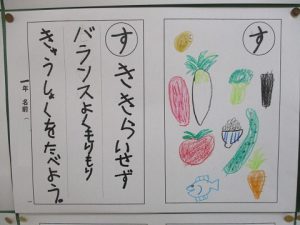 す
すききらいせず
バランスよくもりもり
きゅうしょくをたべよう。
一年 名前（